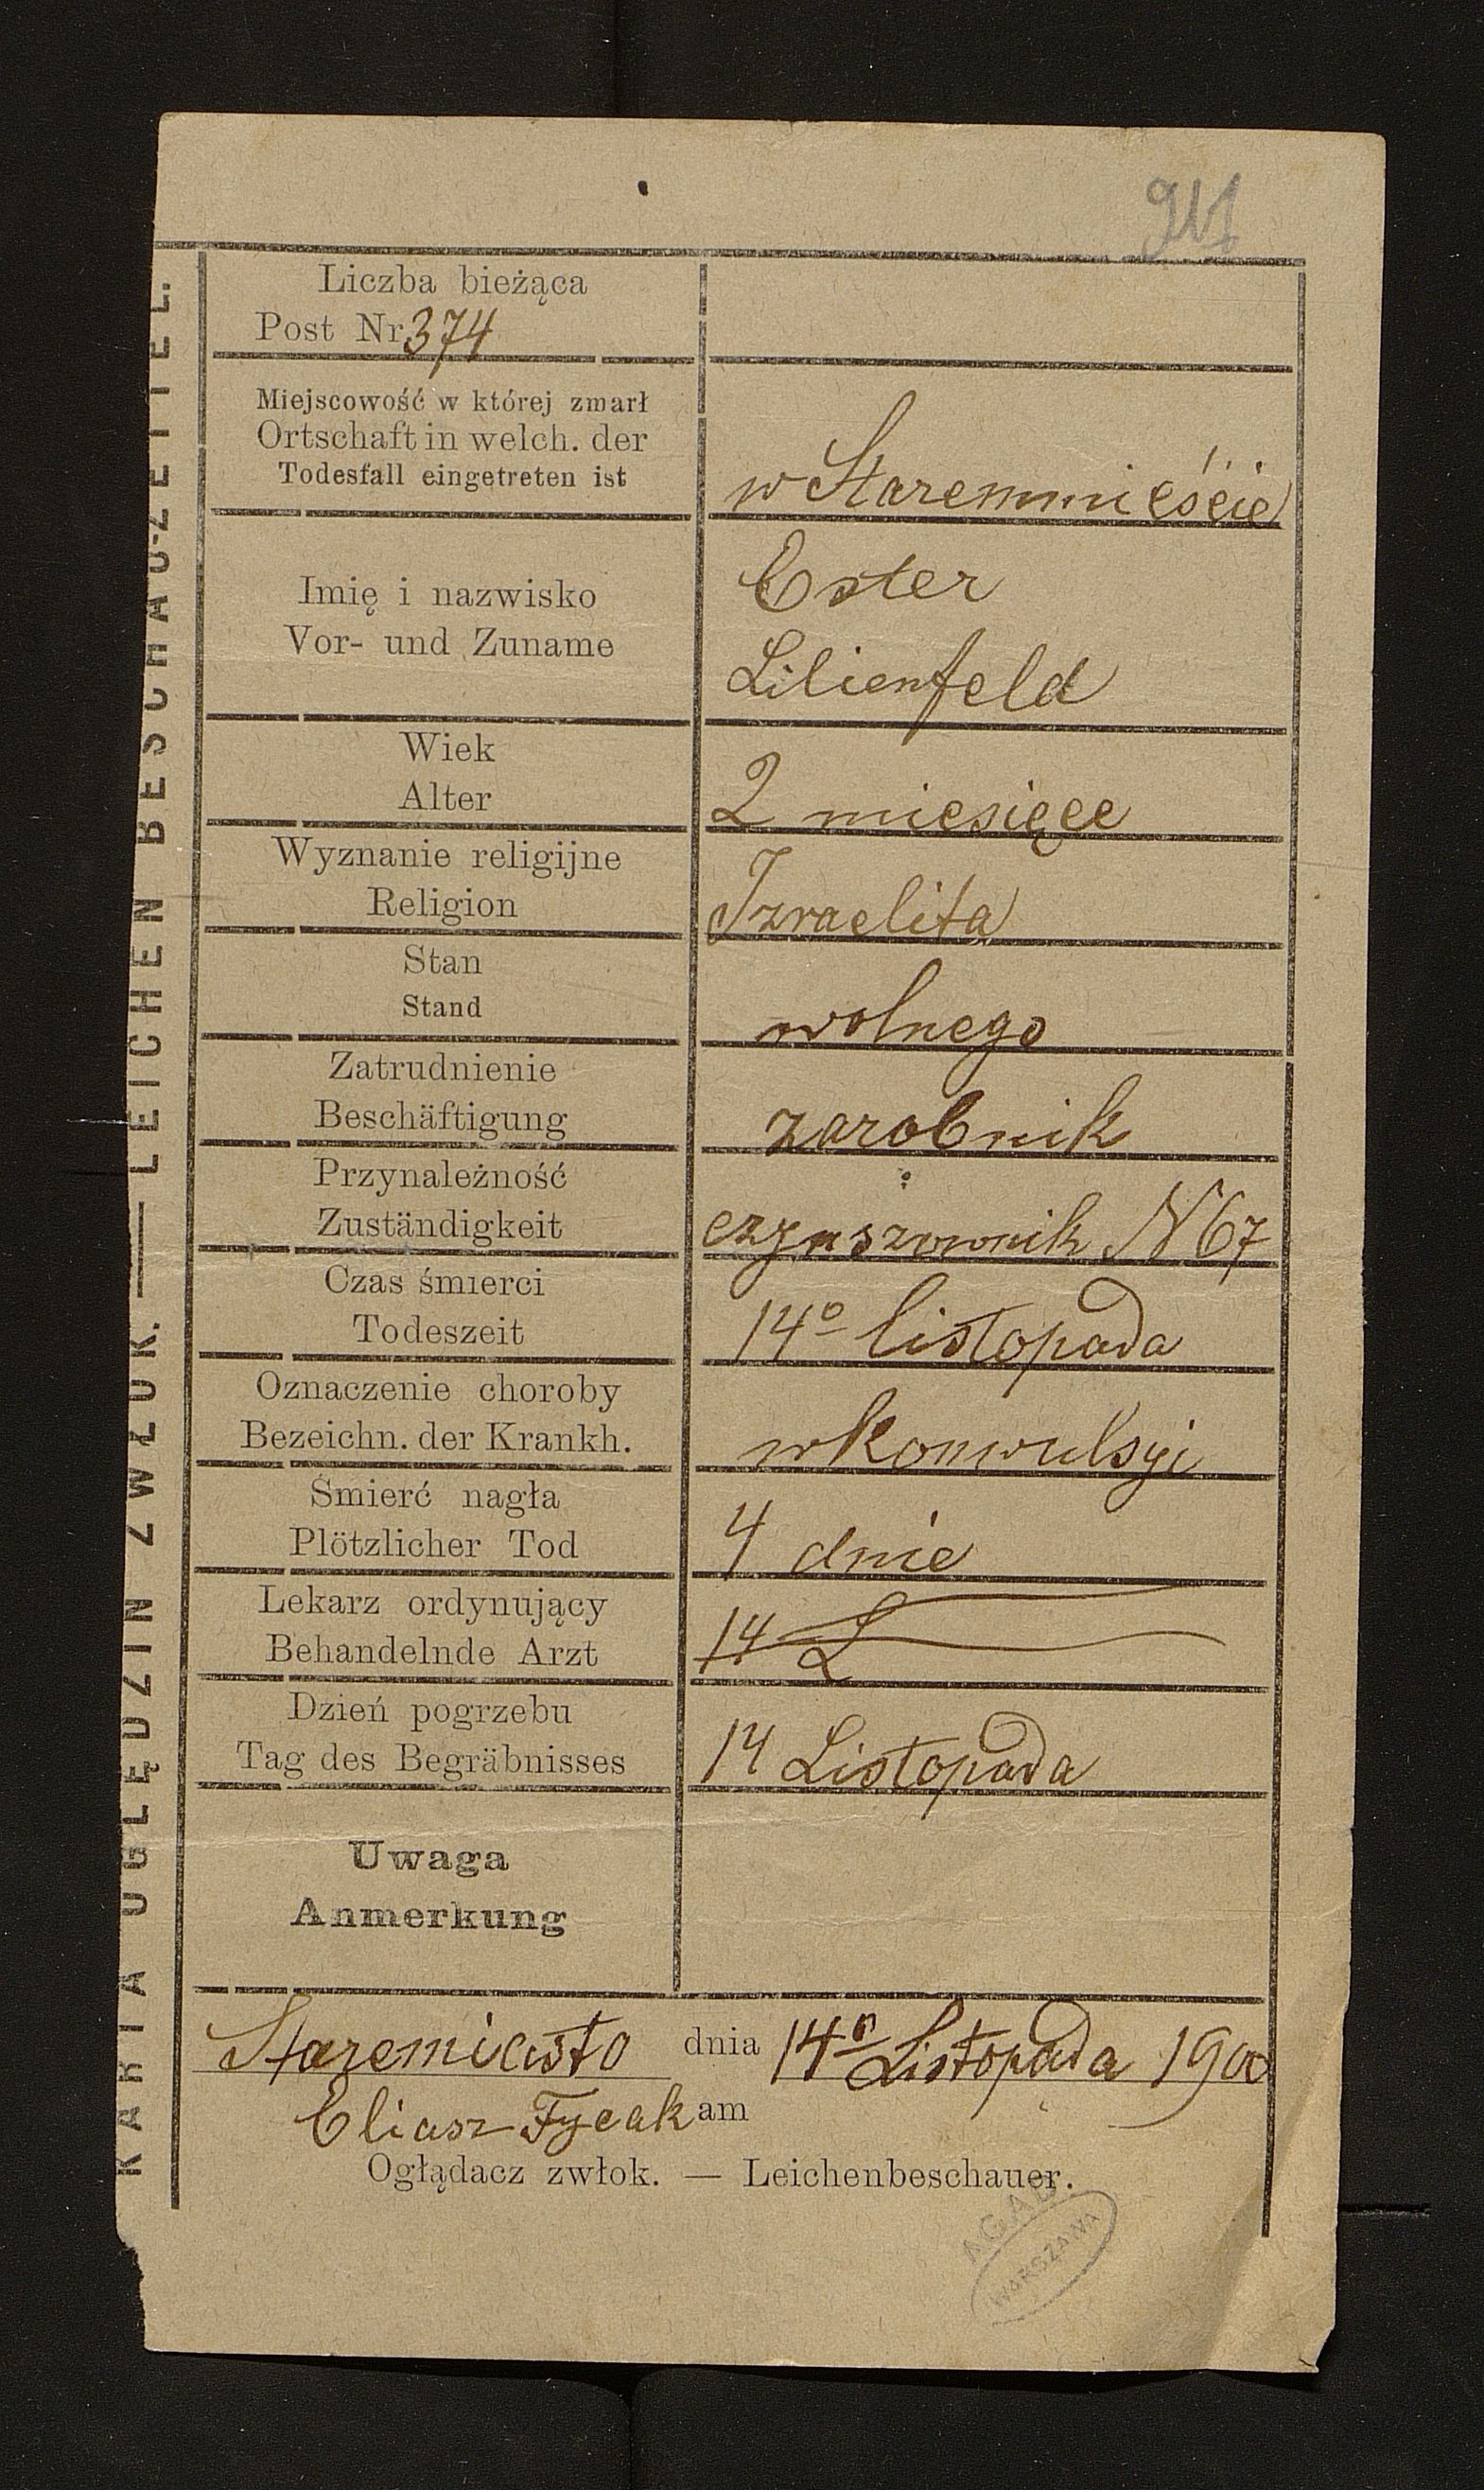 KARTA OGLĘDZIN ZWŁOK. — LEICHEN BESCHAU-ZETTEL.
Liczba bieżąca
Post Nr 374
Miejscowość w której zmarł
Ortschaft in welch. der
Todesfall eingetreten ist
w Staremmieście
Imię i nazwisko
Vor- und Zuname
Ester
Lilienfeld
Wiek
Alter
2 miesięce
Wyznanie religijne
Religion
Izraelita
Stan
Stand
wolnego
Zatrudnienie
Beschäftigung
zarobnik
Przynależność
Zuständigkeit
N 67
Czas śmierci
Todeszeit
14º listopada
Oznaczenie choroby
Bezeichn. der Krankh.
w konwulsyi
Śmierć nagła
Plötzlicher Tod
4 dnie
Lekarz ordynujący
Behandelnde Arzt
14
Dzień pogrzebu
Tag des Begräbnisses
14 Listopada
Uwaga
Anmerkung
Staremiasto dnia 14º Listopada 1900
Eliasz am
Oglądacz zwłok. — Leichenbeschauer.
AGAD.
WARSZAWA